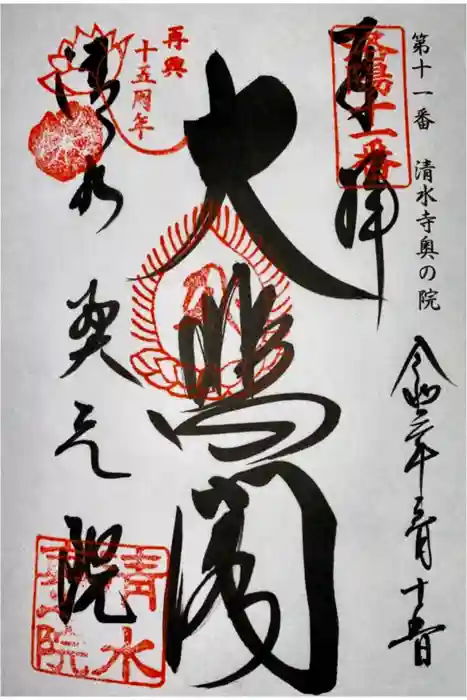 第十一番　清水寺奥の院
令和二年三月十五日
奉拝
洛陽十一番
大悲閣
再興
十五周年
清水
奥之院
清水
奥之院